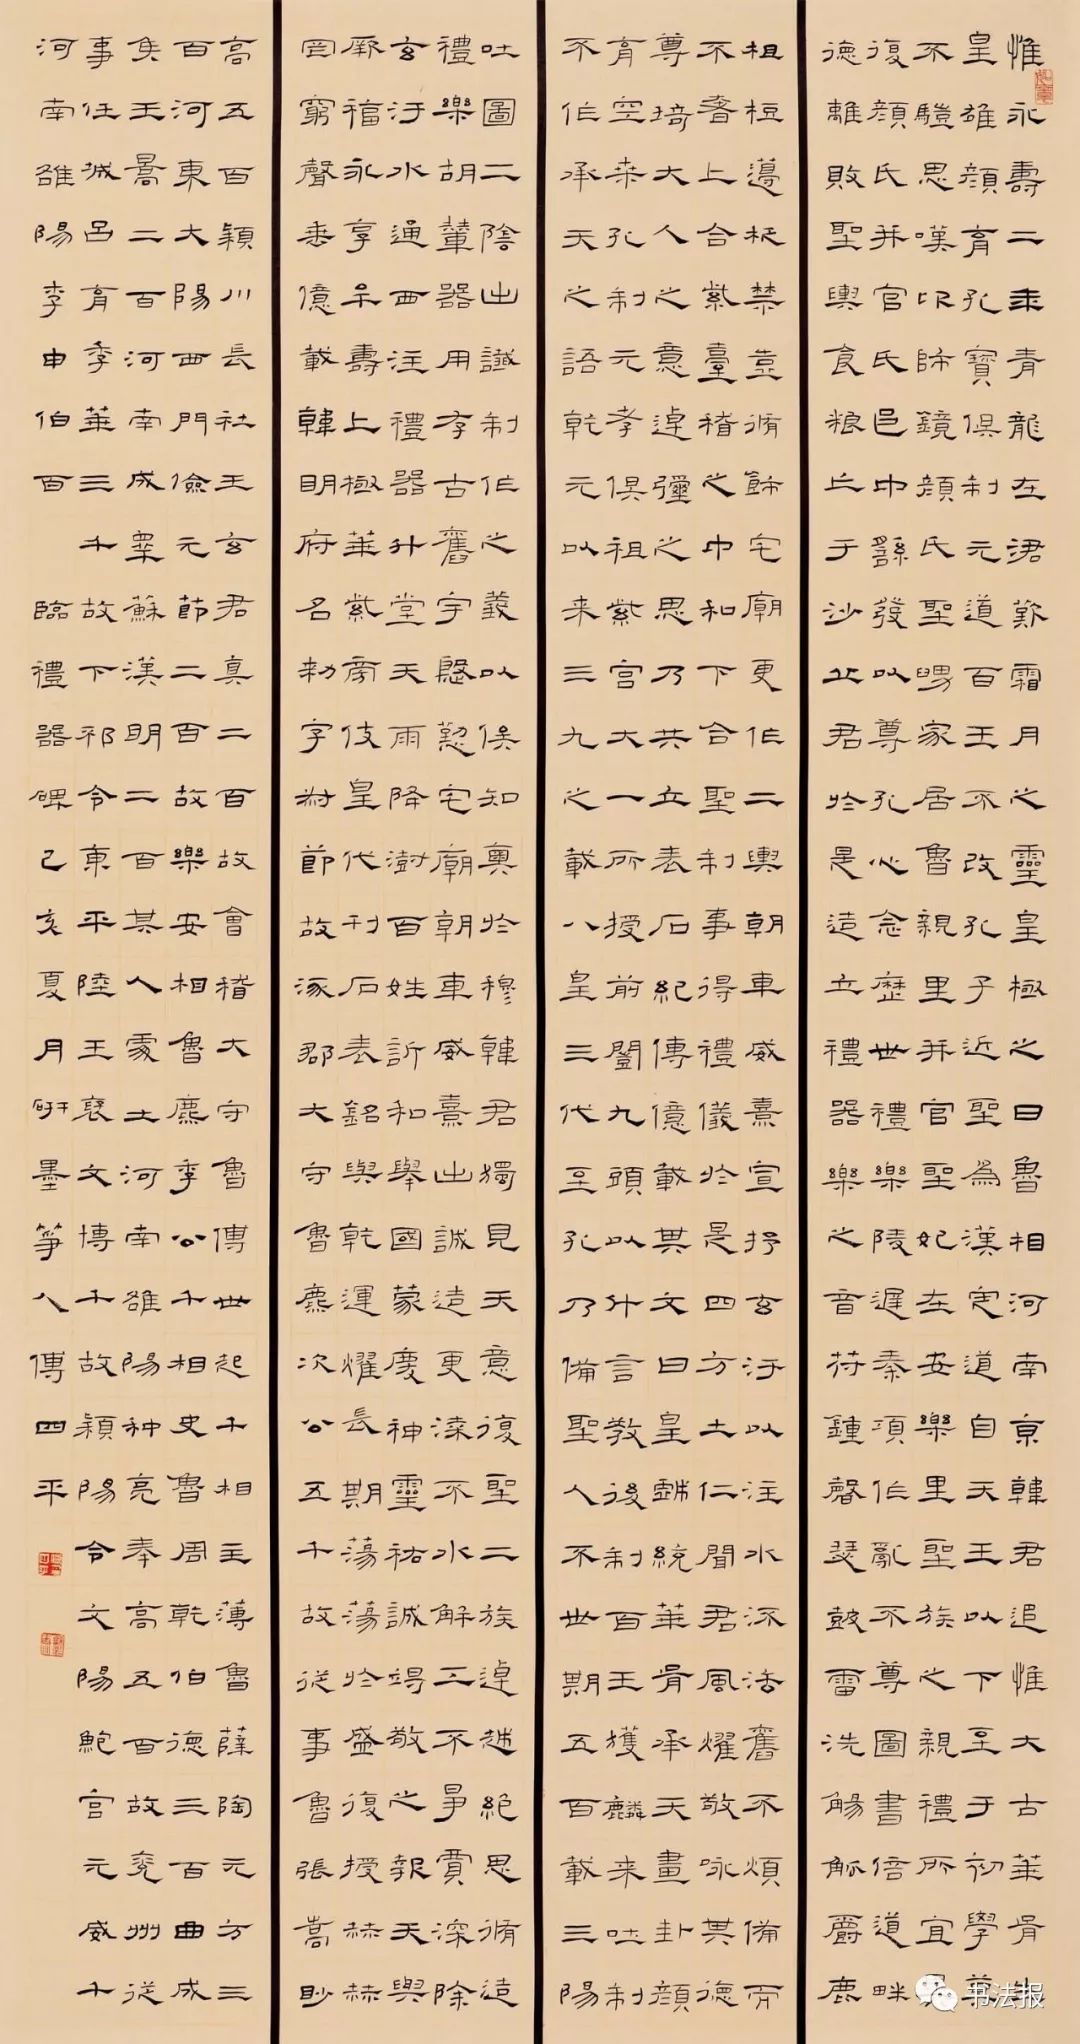 惟永壽二年青龍在涒歎霜月之靈皇極之日魯相河南京韓君追惟大古華胥生
皇雄顏育孔寶俱制元道百王不改孔子近聖為漢定道自天王以下至于初學莫
不驥思嘆卬師鏡顏氏聖舅家居魯親里并官聖妃在安樂里聖族之親禮所宜異
復顏氏并官氏邑中繇發以尊孔心念歷世禮樂陵遲秦項作亂不尊圖書倍道畔
德離敗聖輿食粮亡于沙丘君於是造立禮器樂之音符鍾磬瑟鼓雷洗觴觚爵鹿
柤梪籩柉禁壺脩飾宅廟更作二輿朝車威熹宣抒玄汙以注水流法舊不煩備而
不奢上合紫臺稽之中和下合聖制事得禮儀於是四方土仁聞君風燿敬咏其德
尊琦大人之意逴彌之思乃共立表石紀傳億載其文曰皇戲統華胥承天畫卦顏
育空桑孔制元孝俱祖紫宮大一所授前闓九頭以升言教後制百王獲麟來吐制
不作承天之語乾元以來三九之載八皇三代至孔乃備聖人不世期五百載三陽
吐圖二陰出讖制作之義以俟知奧於穆韓君獨見天意復聖二族逴越絕思脩造
禮樂胡輦器用存古舊宇慇懃宅廟朝車威熹出誠造更漆不水解工不爭賈深除
玄汙水通四注禮器升堂天雨降澍百姓訢和舉國蒙慶神靈祐誠竭敬之報天與
厥福永享牟壽上極華紫旁伎皇代刊石表銘與乾運燿長期蕩蕩於盛復授赫赫
罔窮聲垂億載韓明府名勑字叔節故涿郡大守魯麃次公五千故從事魯張嵩眇
高五百潁川長社王玄君真二百故會稽大守魯傅世起千相主薄魯薛陶元方三
百河東大陽西門儉元節二百故樂安相魯麃季公千相史魯周乾伯德三百曲成
侯王暠二百河南成睪蘇漢明二百其人處士河南雒陽种亮奉高五百故兗州從
事任城呂育季華三千故下邳令東平陸王褒文博千故潁陽令文陽鮑宮元威千
河南雒陽李申伯百 臨禮器碑己亥夏月研墨箏人傅四平
书法报